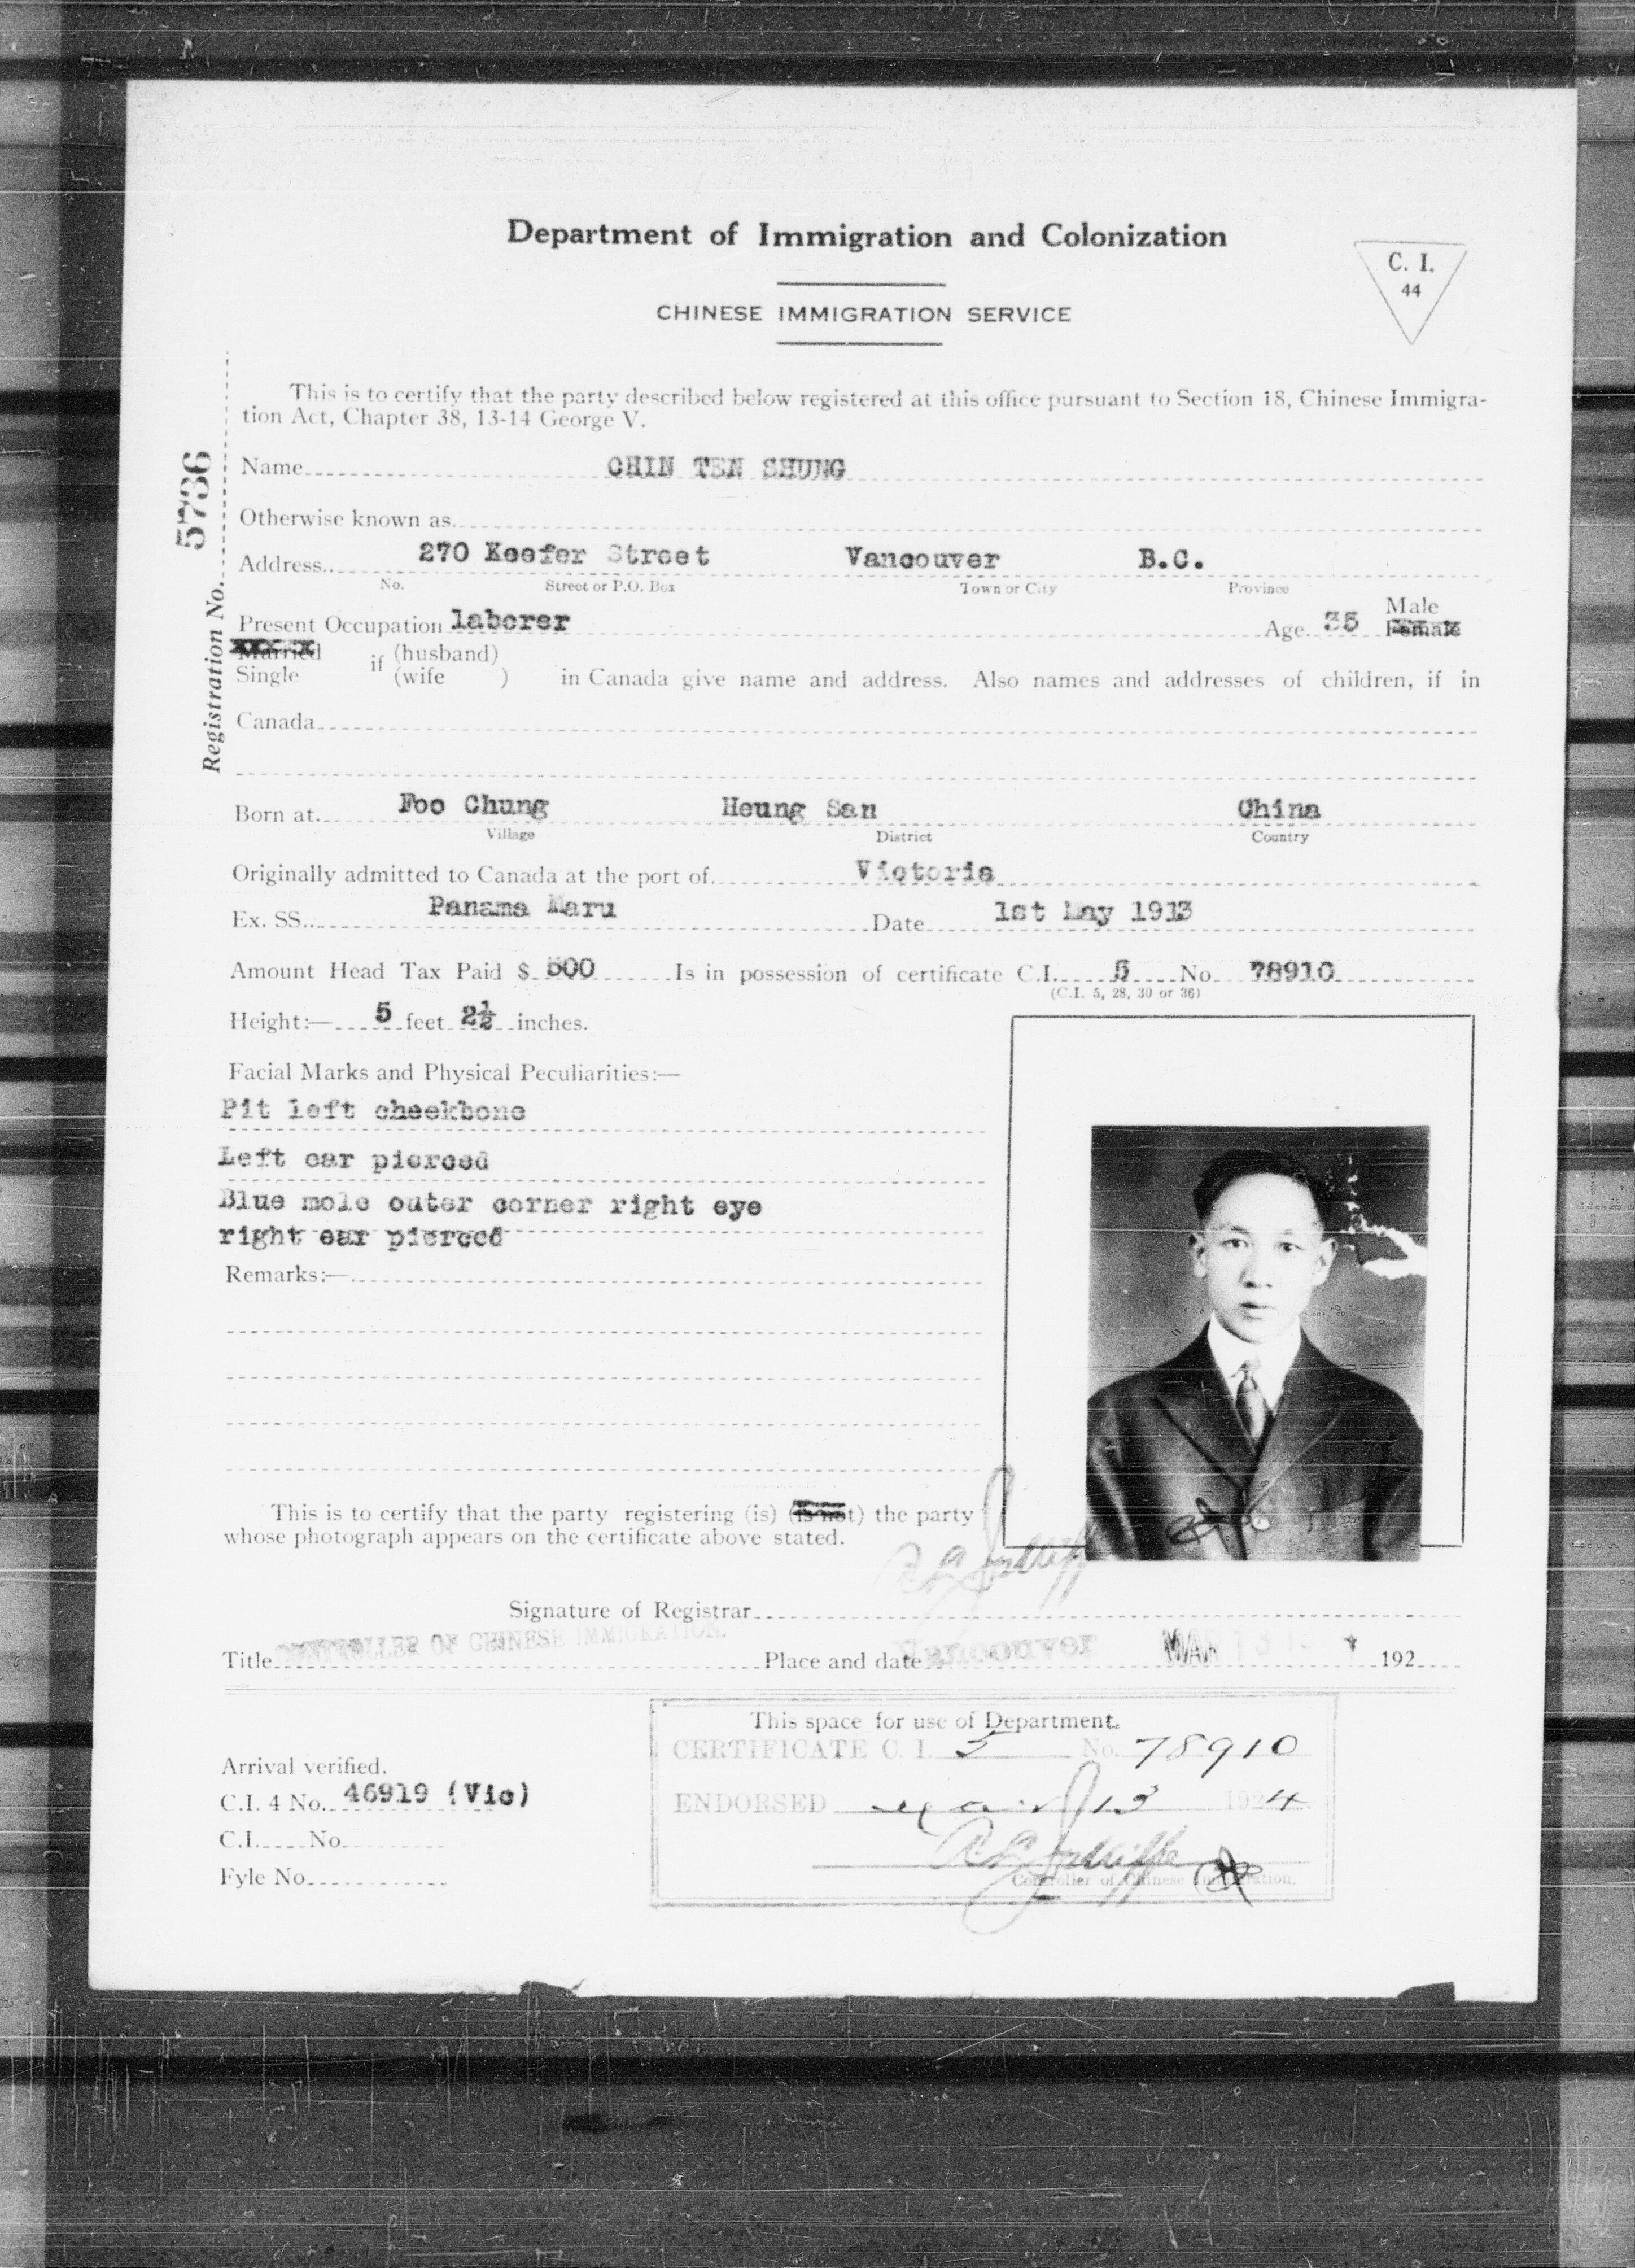 Department of Immigration and Colonization
C. I.
44
CHINESE IMMIGRATION SERVICE
This is to certify that the party described below registered at this office pursuant to Section 18, Chinese Immigra-
tion Act, Chapter 38, 13-14 George V.
Registration No. 5736
Name CHIN TEN SHUNG
Otherwise known as
Address 270 Keefer Street Vancouver B.C.
No. Street or P.O. Box Town or City Province
Present Occupation laborer Age 35 Male Female
Married if (husband)
Single (wife ) in Canada give name and address. Also names and addresses of children, if in
Canada
Born at Foo Chung Heung San China
Village District Country
Originally admitted to Canada at the port of Victoria
Ex. SS. Panama Maru Date 1st May 1913
Amount Head Tax Paid $ 500 Is in possession of certificate C.I. 5 No. 78910
(C.I. 5, 28, 30 or 36)
Height:— 5 feet 2½ inches.
Facial Marks and Physical Peculiarities:—
Pit left cheekbone
Left ear pierced
Blue mole outer corner right eye
right ear pierced
Remarks:—
This is to certify that the party registering (is) (is not) the party
whose photograph appears on the certificate above stated.
Signature of Registrar
Title CONTROLLER OF CHINESE IMMIGRATION. Place and date Vancouver MAR 13 192
This space for use of Department.
CERTIFICATE C. I. 5 No. 78910
ENDORSED Mar 13 1924
Controller of Chinese Immigration.
Arrival verified.
C.I. 4 No. 46919 (Vic)
C.I. No.
Fyle No.